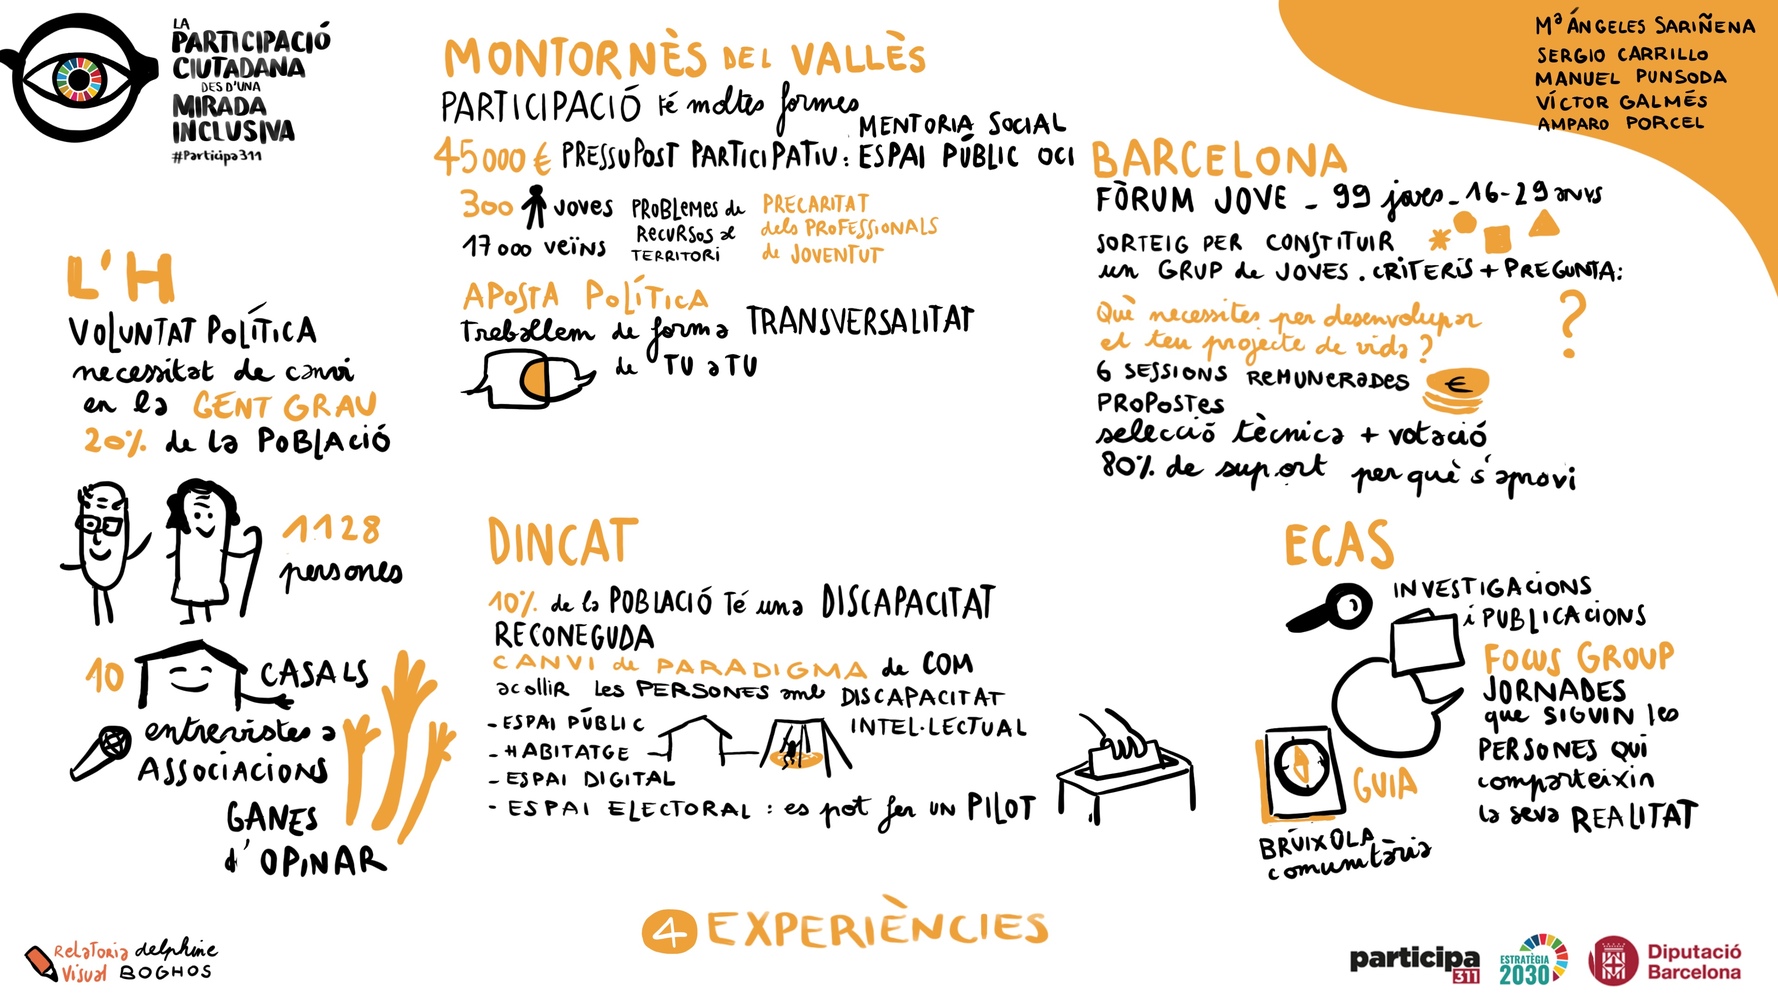 LA
PARTICIPACIÓ
CIUTADANA
DES D'UNA
MIRADA
INCLUSIVA
#Participa311
Mª ÁNGELES SARIÑENA
SERGIO CARRILLO
MANUEL PUNSODA
VÍCTOR GALMÉS
AMPARO PORCEL
L'H
VOLUNTAT POLÍTICA
necessitat de canvi
en la GENT GRAU
20% de la POBLACIÓ
1128
persones
10 CASALS
entrevistes a
ASSOCIACIONS
GANES
d'OPINAR
MONTORNÈS DEL VALLÈS
PARTICIPACIÓ té moltes formes
MENTORIA SOCIAL
45000 € PRESSUPOST PARTICIPATIU: ESPAI PÚBLIC OCI
300 JOVES
17000 VEÏNS
PROBLEMES de
RECURSOS al
TERRITORI
PRECARITAT
dels PROFESSIONALS
de JOVENTUT
APOSTA POLÍTICA
treballem de forma TRANSVERSALITAT
de TU a TU
BARCELONA
FÒRUM JOVE - 99 joves - 16-29 anys
SORTEIG PER CONSTITUIR
un GRUP de JOVES. CRITERIS + PREGUNTA:
Què necessites per desenvolupar
el teu projecte de vida?
?
6 SESSIONS REMUNERADES
€
PROPOSTES
selecció tècnica + votació
80% de suport per què s'aprovi
DINCAT
10% de la POBLACIÓ té una DISCAPACITAT
RECONEGUDA
CANVI de PARADIGMA de COM
acollir les PERSONES amb DISCAPACITAT
INTEL·LECTUAL
- ESPAI PÚBLIC
- HABITATGE
- ESPAI DIGITAL
- ESPAI ELECTORAL: es pot fer UN PILOT
ECAS
INVESTIGACIONS
i PUBLICACIONS
FOCUS GROUP
JORNADES
que SIGUIN les
PERSONES QUI
comparteixin
la seva REALITAT
GUIA
BRÚIXOLA
comunitària
4 EXPERIÈNCIES
Relatoria delphine
Visual BOGHOS
participa
311
ESTRATÈGIA
2030
Diputació
Barcelona